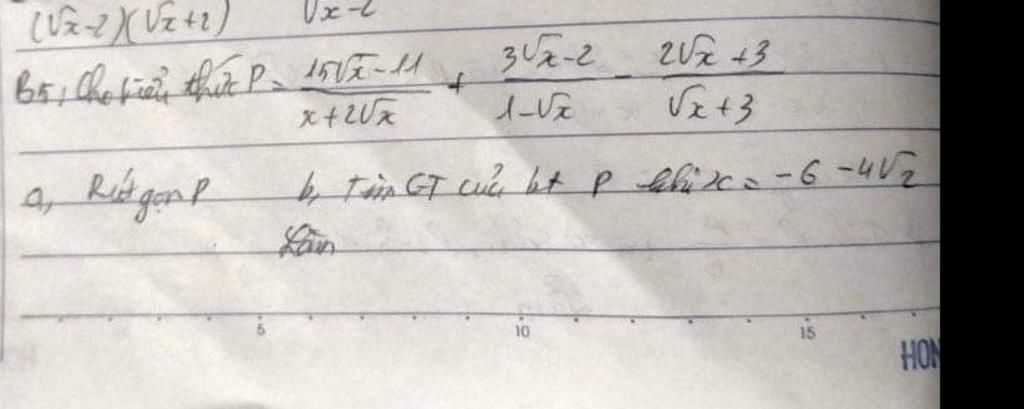 (√x-2)(√x+2) √x-2
B5, Cho biểu thức P = (15√x - 11)/(x + 2√x) + (3√x - 2)/(1 - √x) - (2√x + 3)/(√x + 3)
a, Rút gọn P b, Tìm GT của bt P khi x = -6 - 4√2
5 10 15
HON